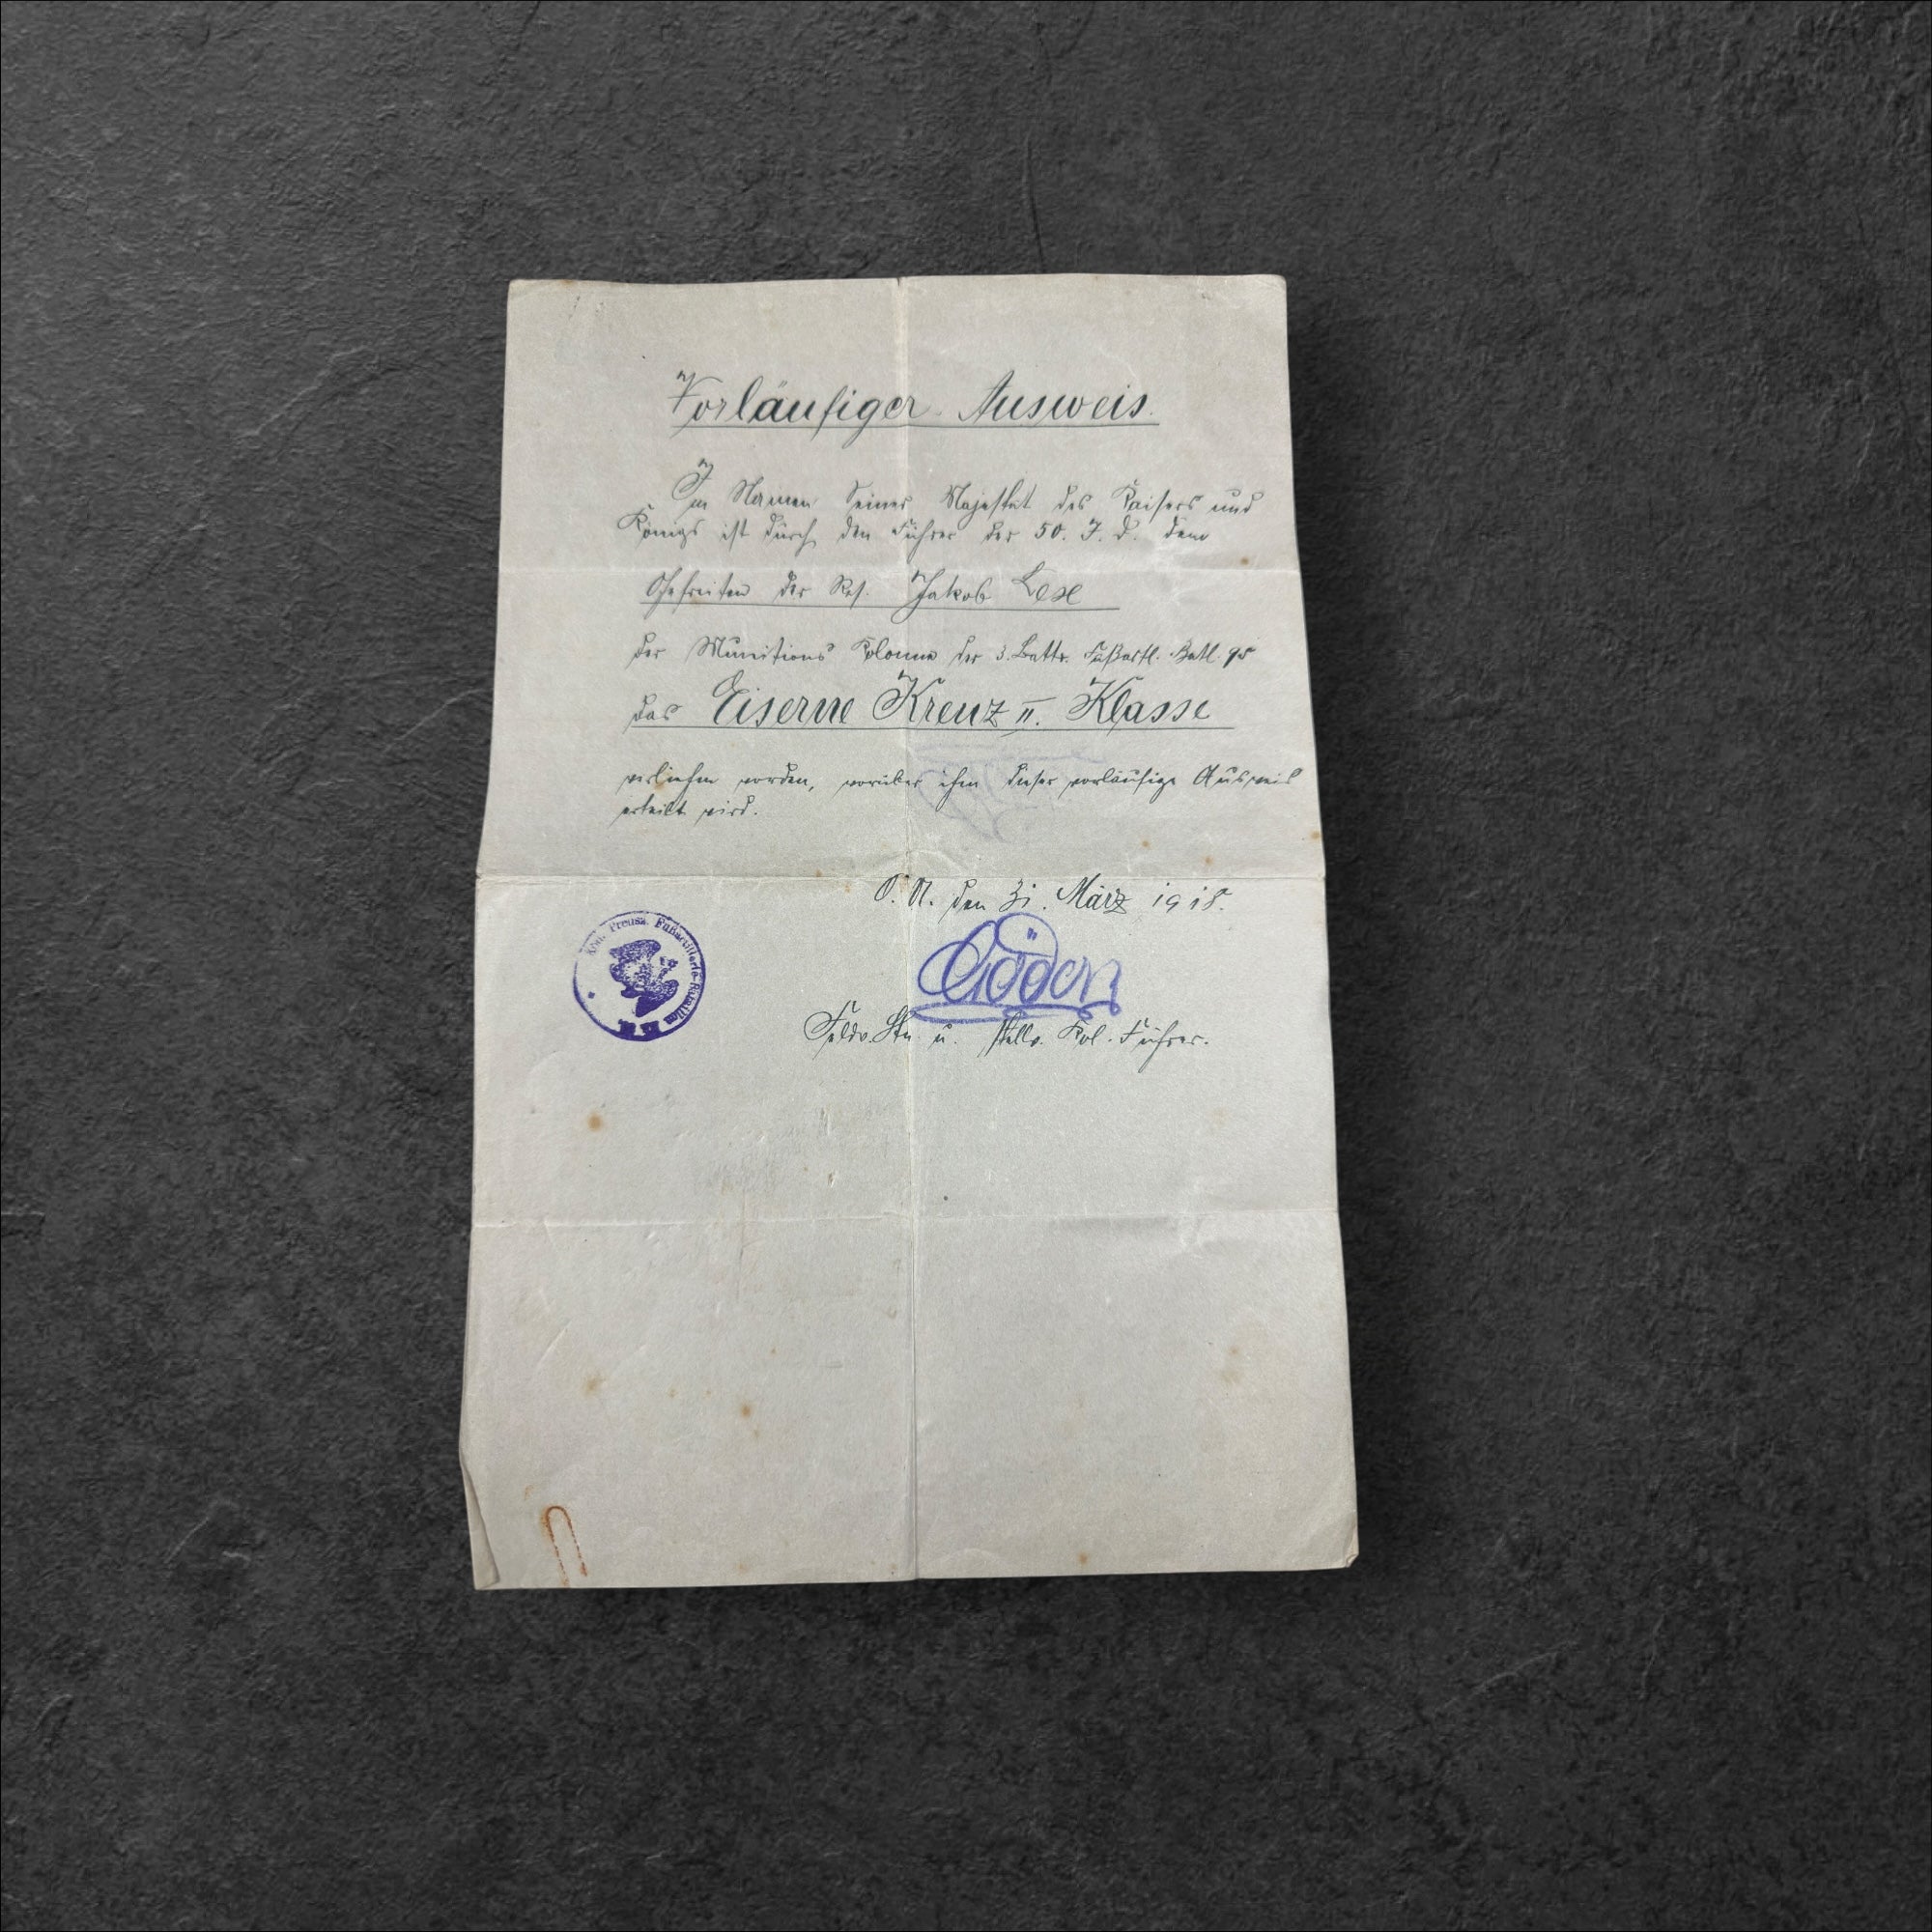 Vorläufiger Ausweis.
Im Namen Seiner Majestät des Kaisers und
Königs ist durch den Führer der 50. I. D. dem
Gefreiten der Res. Jakob
der Munitions Kolonne der 3. Battr. Fußartl. Batl. 95
das Eiserne Kreuz II. Klasse
verliehen worden, worüber ihm dieser vorläufige Ausweis
erteilt wird.
O. U. den 31. März 1918.
Kön. Preuss. Fußartillerie-Bataillon
Feldw. Ltn u. stellv. Kol. Führer.